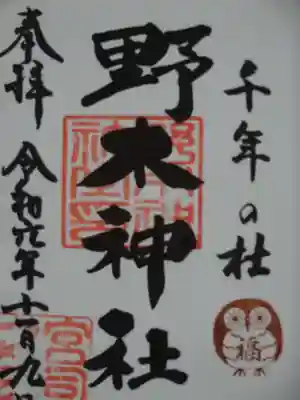 千年の杜
野木神社
奉拝
令和六年十一月九日
福